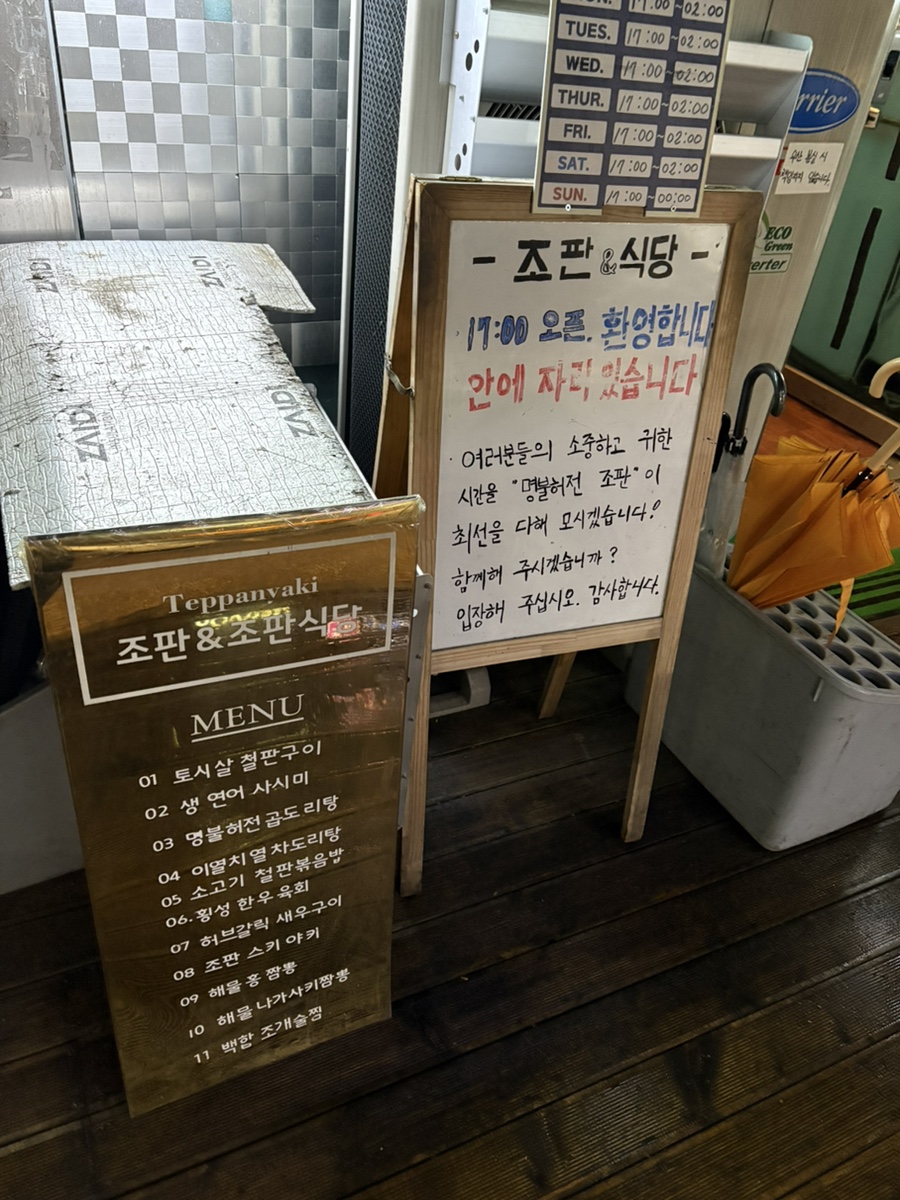 17:00~02:00
TUES. 17:00~02:00
WED. 17:00~02:00
THUR. 17:00~02:00
FRI. 17:00~02:00
SAT. 17:00~02:00
SUN. 17:00~00:00
- 조판&식당 -
17:00 오픈. 환영합니다
안에 자리 있습니다
여러분들의 소중하고 귀한
시간을 "명불허전 조판"이
최선을 다해 모시겠습니다!
함께해 주시겠습니까?
입장해 주십시오. 감사합니다.
Teppanyaki
조판&조판식당
MENU
01 토시살 철판구이
02 생 연어 사시미
03 명불허전 곱도리탕
04 이열치열 차도리탕
05 소고기 철판볶음밥
06. 횡성 한우 육회
07 허브갈릭 새우구이
08 조판 스키야키
09 해물 홍 짬뽕
10 해물 나가사키짬뽕
11 백합 조개술찜
ZAIDI
ZAIDI
ZAIDI
ZAIDI
rrier
우산 분실 시
책임지지 않습니다.
ECO
Green
verter